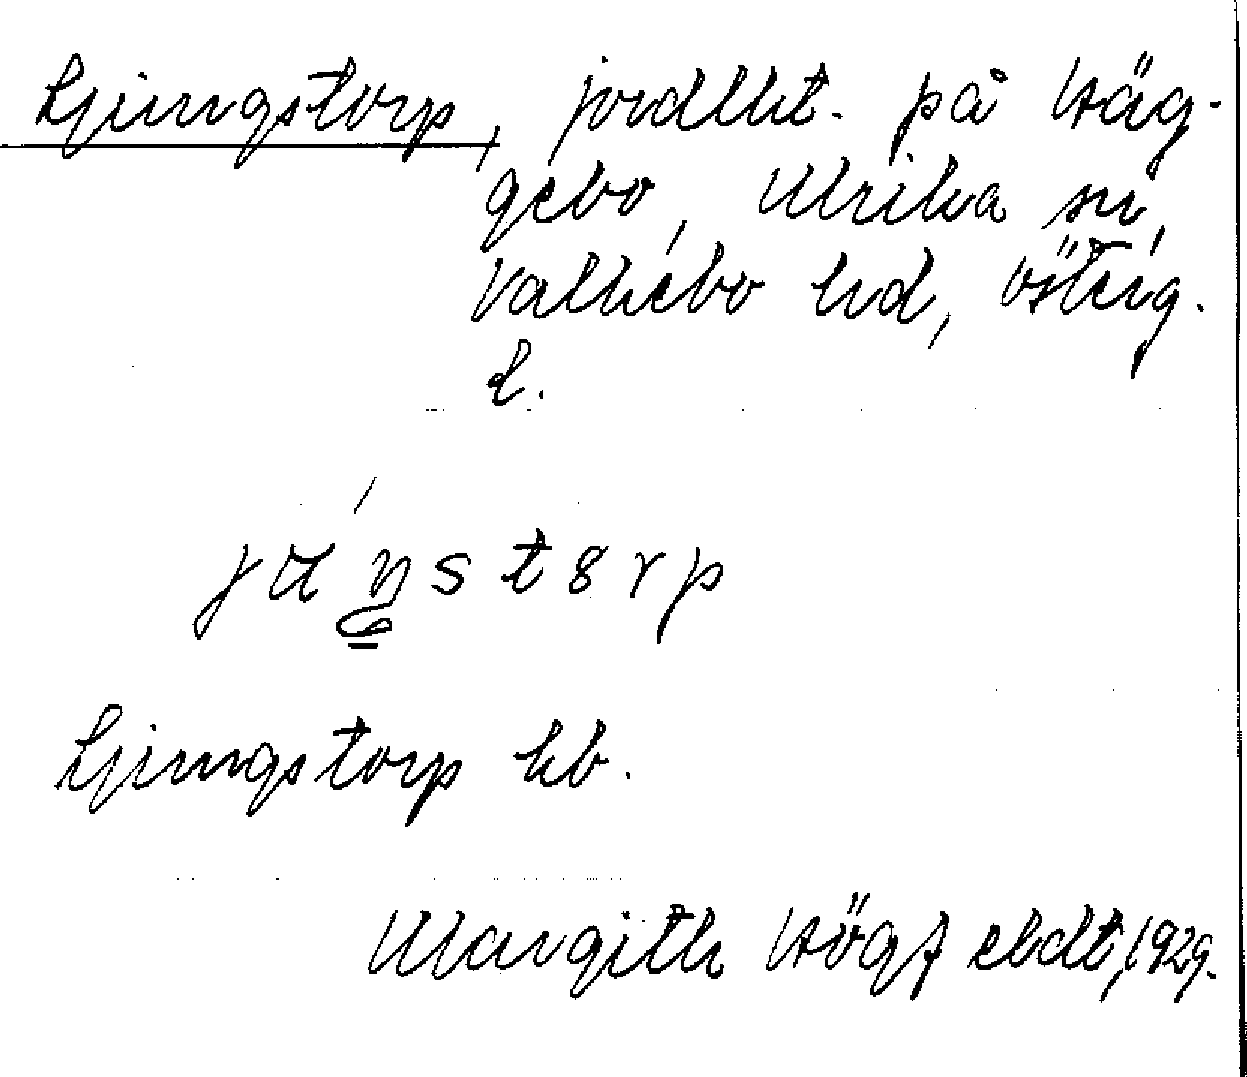 Ljungstorp, jordlht. på Häg-
gebo, Ulrika sn,
Valkebo hd, Österg.
l.
Ljungstorp kb.
Margith Högf 1929.